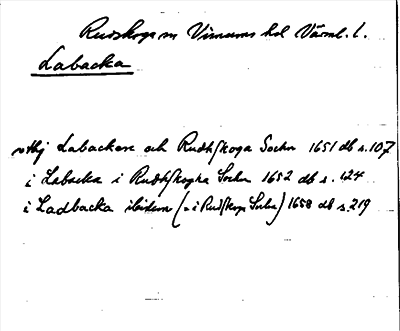 Rudskoga sn Visnums hd Värml. l.
Labacka
vthj Labackan och Rudhskoga Sochn 1651 db s. 107
i Labacka i Rudhskogha Sochn 1652 db s. 124
i Ladbacka ibidem (: i Rudskoga Sochn) 1658 db s. 219